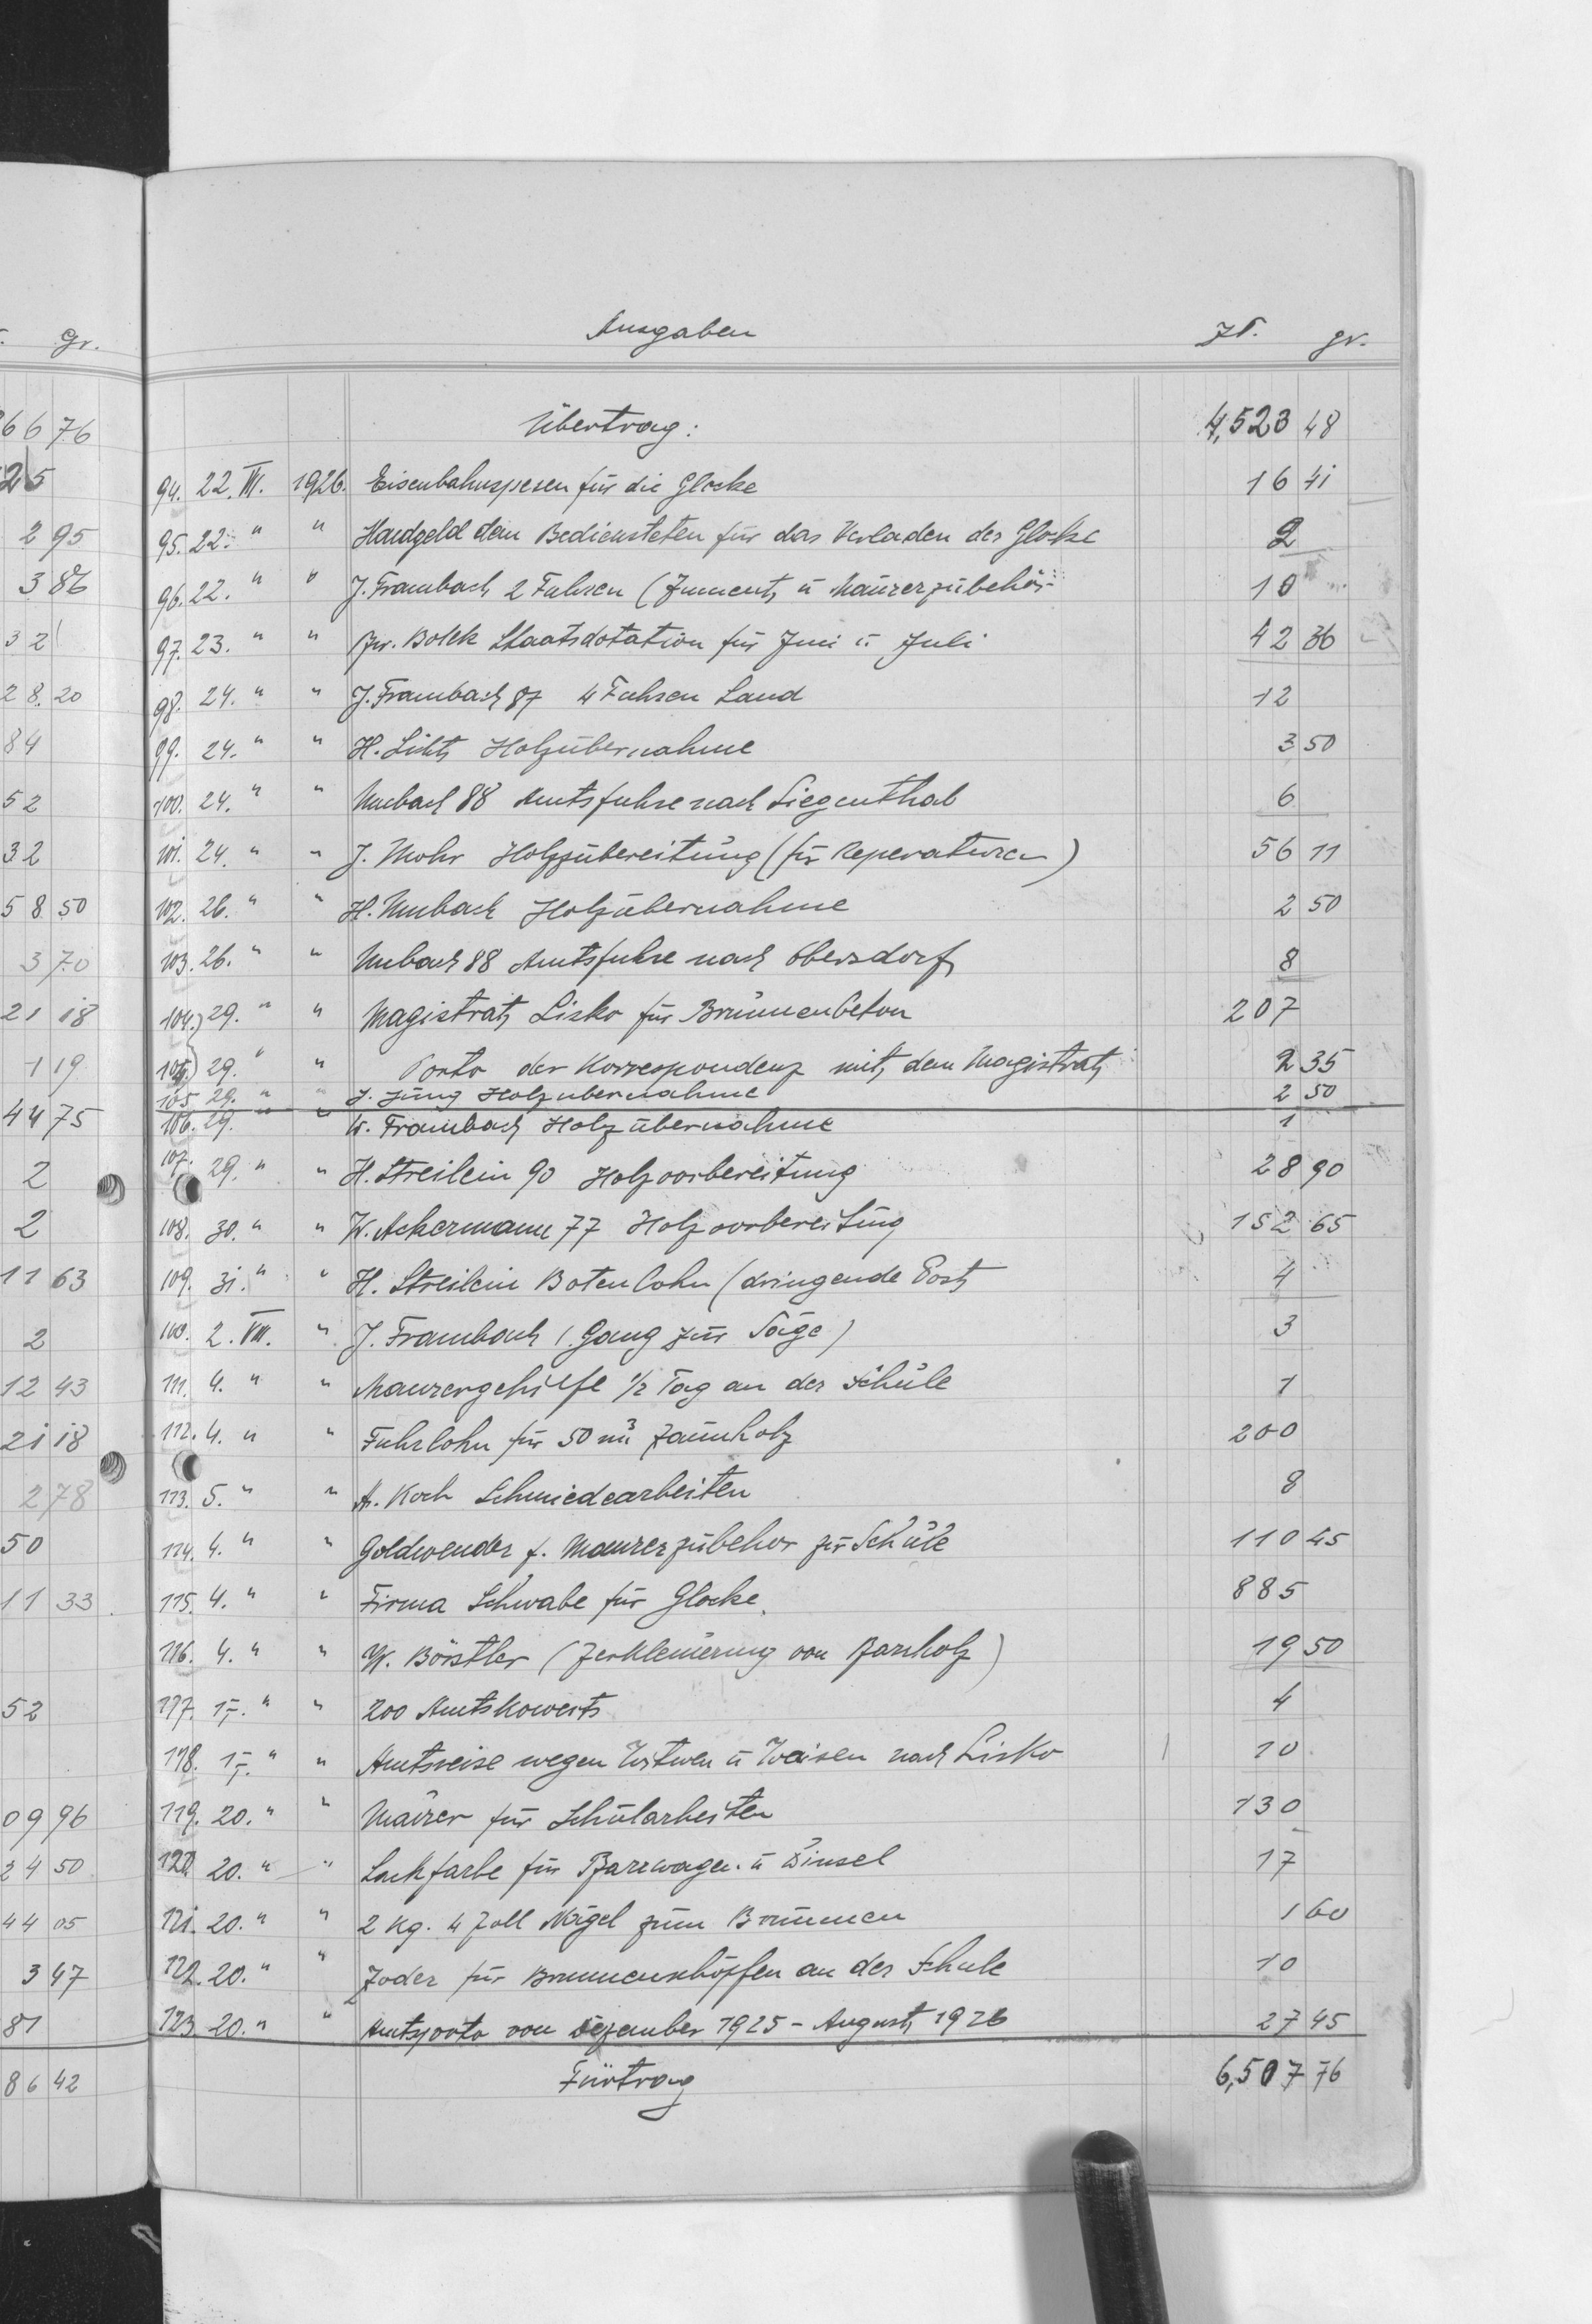 Gr.
Ausgaben Zl. gr.
6676
Übertrag: 4,523 48
25
94. 22. VII. 1926. Eisenbahnspesen für die Glocke 16 41
2 95
95. 22. " " Handgeld dem Bediensteten für das Verladen der Glocke 2
3 86
96. 22. " " J. Frambach 2 Fuhren (Zement u Maurerzubehör 10
32
97. 23. " " Bolek Staatsdotation für Juni u. Juli 42 36
28.20
98. 24. " " J. Frambach 87 4 Fuhren Sand 12
84
99. 24. " " H. Licht Holzübernahme 3 50
52
100. 24. " " Umbach 88 Amtsfuhre nach Siegenthal 6
32
101. 24. " " J. Mohr Holzzubereitung (für Reperaturen) 56 11
58 50
102. 26. " " H. Umbach Holzübernahme 2 50
3 70
103. 26. " " Umbach 88 Amtsfuhre nach Obersdorf 8
21 18
104.) 29. " " Magistrat Lisko für Brunnenbeton 207
1 19
29. " " Porto der Korrespondenz mit dem Magistrat 2 35
105 29. " " J. Jung Holzübernahme 2 50
44 75
106. 29. " " W. Frambach Holzübernahme 1
2
107. 29. " " H. Streilein 90 Holzvorbereitung 28 90
2
108. 30. " " W. Ackermann 77 Holzvorbereitung 152 65
11 63
109. 31. " " H. Streilein Botenlohn (dringende Post 4
2
110. 2. VIII. " J. Frambach (Gang zur Säge) 3
12 43
111. 4. " " Maurergehilfe 1/2 Tag an der Schule 1
21 18
112. 4. " " Fuhrlohn für 50 m³ Zaunholz 200
2 78
113. 5. " " A. Koch Schmiedearbeiten 8
50
114. 4. " " Goldwender f. Maurerzubehör zur Schule 110 45
11 33
115. 4. " " Firma Schwabe für Glocke. 885
116. 4. " " W. Börstler (Zerkleinerung von Pfarrholz) 19 50
52
117. 17. " " 200 Amtskowerts 4
118. 17. " " Amtsreise wegen Witwen u Waisen nach Lisko 10
09 96
119. 20. " " Maurer für Schularbeiten 130
24 50
120. 20. " " Lackfarbe für Pfarrwagen u Pinsel 17
44 05
121. 20. " " 2 kg. 4 Zoll Nägel zum Brunnen 1 60
3 47
122. 20. " " Zoder für Brunnenschöpfen an der Schule 10
81
123. 20. " " Amtsporto von Dezember 1925 - August 1926 27 45
86 42
Fürtrag 6,507 76